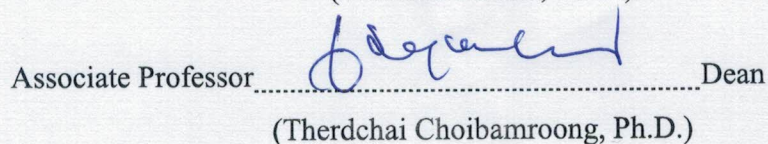 Associate Professor Dean
(Therdchai Choibamroong, Ph.D.)